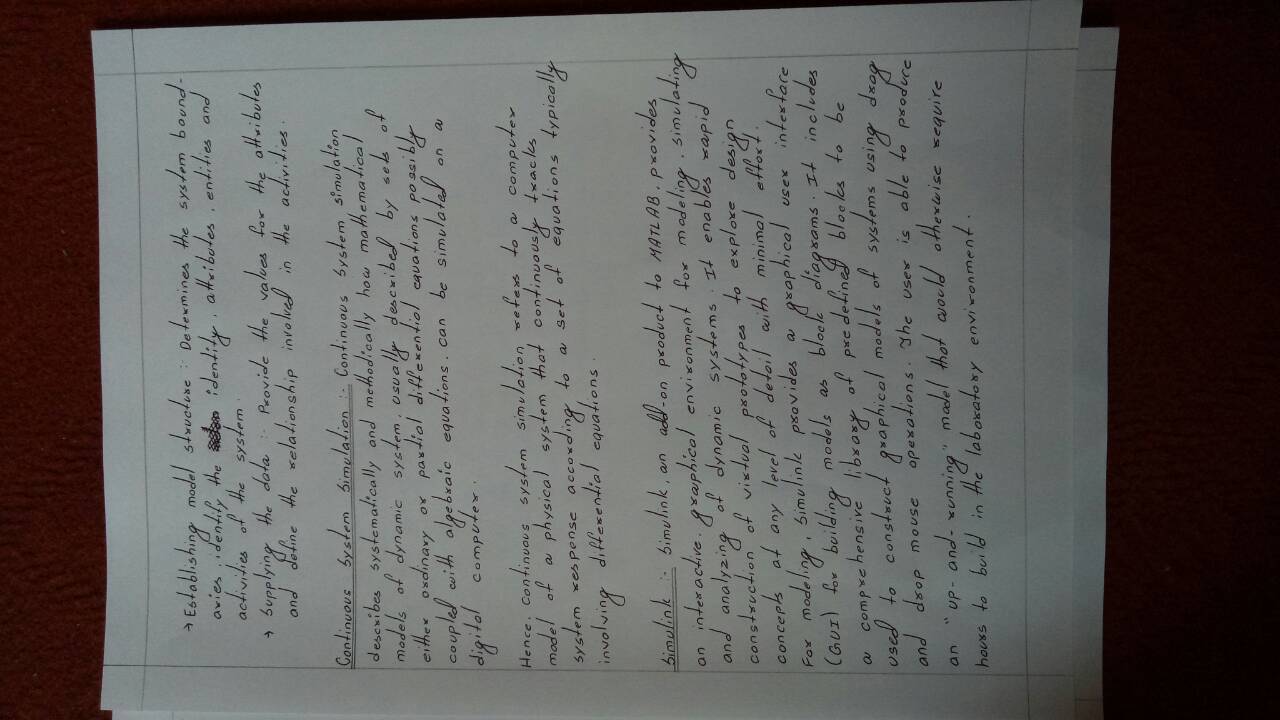 → Establishing model structure :- Determines the system bound-
aries, identify the identity, attributes, entities and
activities of the system.
→ Supplying the data :- Provide the values for the attributes
and define the relationship involved in the activities.
Continuous System Simulation :- Continuous System simulation
describes systematically and methodically how mathematical
models of dynamic system, usually described by sets of
either ordinary or partial differential equations possibly
coupled with algebraic equations, can be simulated on a
digital computer.
Hence, Continuous system simulation refers to a computer
model of a physical system that continuously tracks
system response according to a set of equations typically
involving differential equations.
Simulink :- Simulink, an add-on product to MATLAB, provides
an interactive, graphical environment for modeling, simulating
and analyzing of dynamic systems. It enables rapid
construction of virtual prototypes to explore design
concepts at any level of detail with minimal effort.
For modeling, Simulink provides a graphical user interface
(GUI) for building models as block diagrams. It includes
a comprehensive library of predefined blocks to be
used to construct graphical models of systems using drag
and drop mouse operations. The user is able to produce
an "up-and-running" model that would otherwise require
hours to build in the laboratory environment.